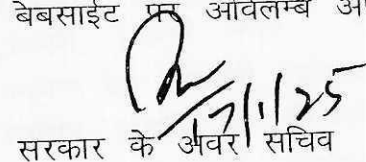 बेबसाईट पर अविलम्ब अ
17/1/25
सरकार के अवर सचिव